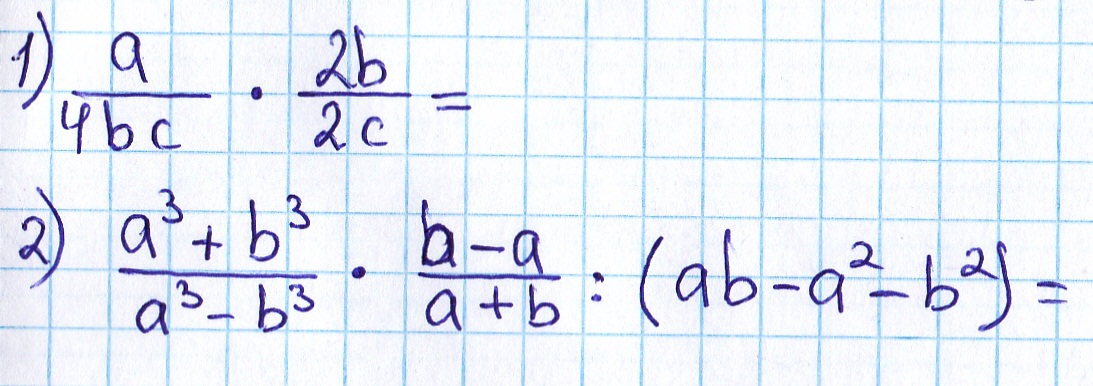 1) a/4bc · 2b/2c =
2) (a³ + b³)/(a³ - b³) · (b - a)/(a + b) : (ab - a² - b²) =